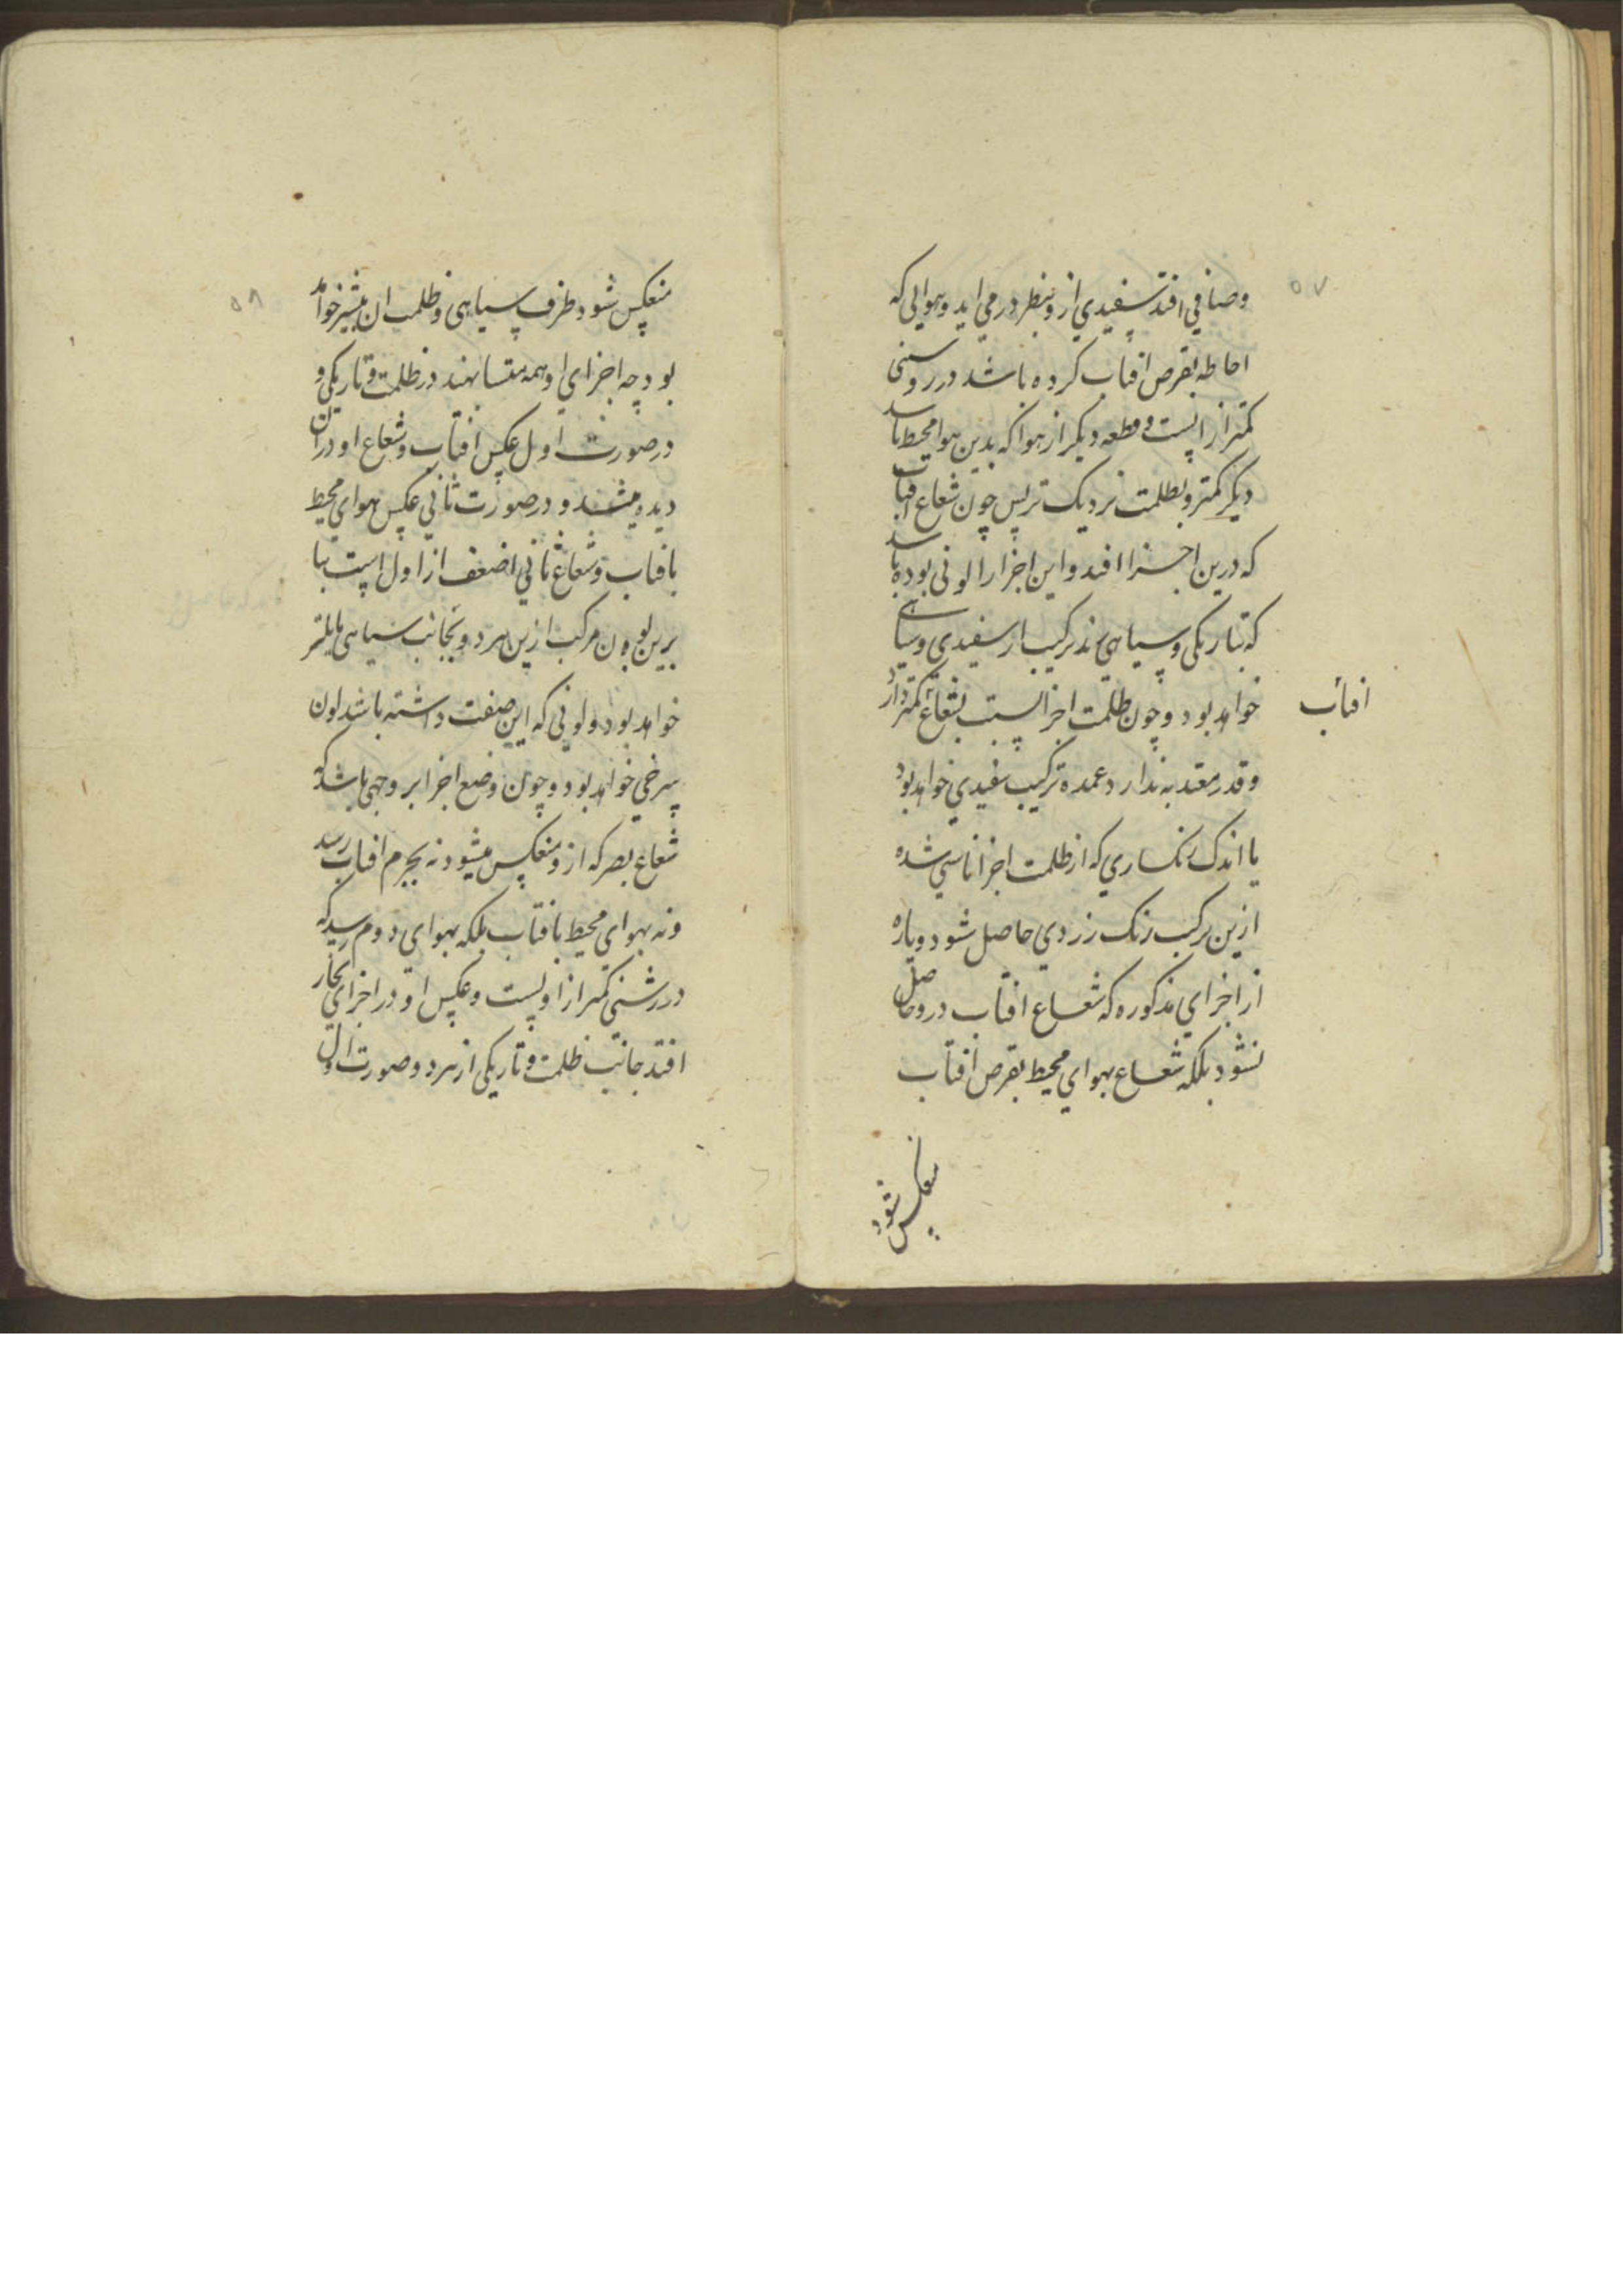 ۵۷
وصافی افتد سفیدی ازو بنظر در می اید وهوایی که
احاطه بقرص افتاب کرده باشد در روشنی
کمتر ازا پست و قطعه دیکر از هوا که بدین هوا محیط باشد
دیکر کمتر وبظلمت نزدیک تر پس چون شعاع افتاب
که درین اجزا افتد واین اجزا را لونی بوده باشد
که بتاریکی وسیاهی زند ترکیب از سفیدی وسیاهی
خواهد بود وچون ظلمت اجزا نسبت بشعاع کمتر دارد
افتاب
وقدر معتد به ندارد عمده ترکیب سفیدی خواهد بود
با اندک انکساری که از ظلمت اجزا ناشی شده
ازین ترکیب رنک زردی حاصل شود وپاره
از اجزای مذکوره که شعاع افتاب درو حاصل
نشود بلکه شعاع بهوای محیط بقرص افتاب
منعکس شود
۵۸
منعکس شود طرف سیاهی وظلمت ان بیشتر خواهد
بود چه اجزای او همه متشابهند در ظلمت وتاریکی و
در صورت اول عکس افتاب وشعاع او در ان
دیده میشد و در صورت ثانی عکس هوای محیط
بافتاب وشعاع ثانی اضعف از اول است بنا
برین لون مرکب ازین هر دو بجانب سیاهی مایلتر
خواهد بود ولونی که این صفت داشته باشد لون
سرخی خواهد بود وچون وضع اجزا بر وجهی باشد که
شعاع بصر که ازو منعکس میشود نه بجرم افتاب رسد
ونه بهوای محیط بافتاب بلکه بهوای دوم رسد که
در روشنی کمتر از اوست وعکس او در اجزای بخار
افتد جانب ظلمت وتاریکی از هر دو صورت اول